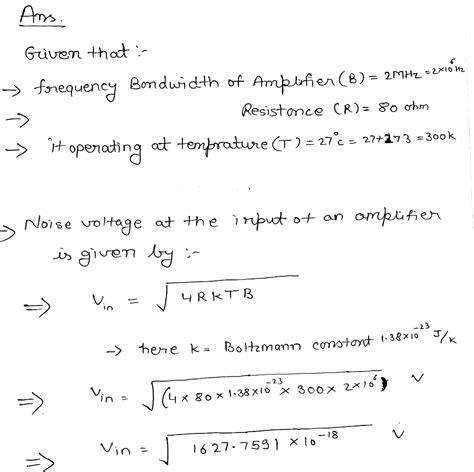 Ans.
Given that :-
→ frequency Bondwidth of Amplifier (B) = 2MHz = 2×10⁶ Hz
→ Resistonce (R) = 80 ohm
→ it operating at temprature (T) = 27°c = 27+273 = 300k
→ Noise voltage at the input of an amplifier
is given by :-
⇒ Vin = √4RKTB
→ here k = Boltzmann constont 1.38×10⁻²³ J/k
⇒ Vin = √(4×80×1.38×10⁻²³ × 300 × 2×10⁶) V
⇒ Vin = √1627.7591 ×10⁻¹⁸ V